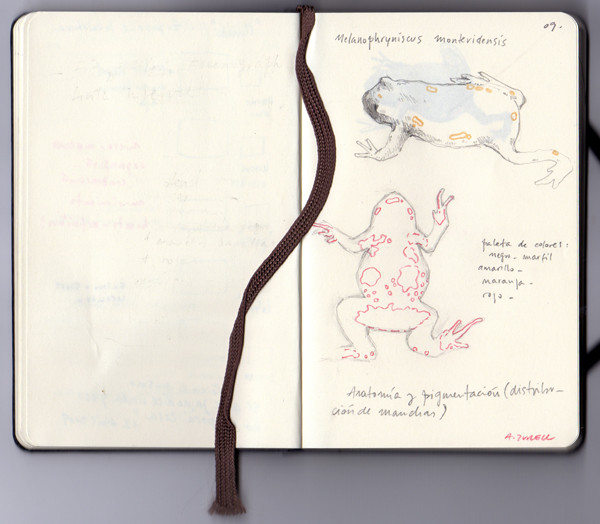 09.
Melanophryniscus montevidensis
paleta de colores:
negro - marfil
amarillo -
naranja -
rojo -
Anatomía y pigmentación (distribu-
ción de manchas)